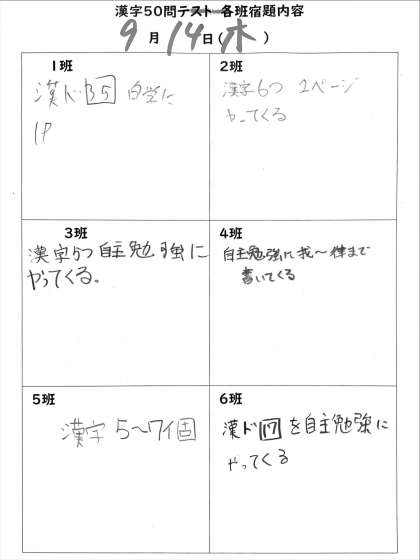 漢字50問テスト 各班宿題内容
9月14日(木)
1班
漢ド35 自学に
1P
2班
漢字6つ 2ページ
やってくる
3班
漢字5つ自主勉強に
やってくる。
4班
自主勉強に我〜律まで
書いてくる
5班
漢字 5〜7イ固
6班
漢ド17を自主勉強に
やってくる